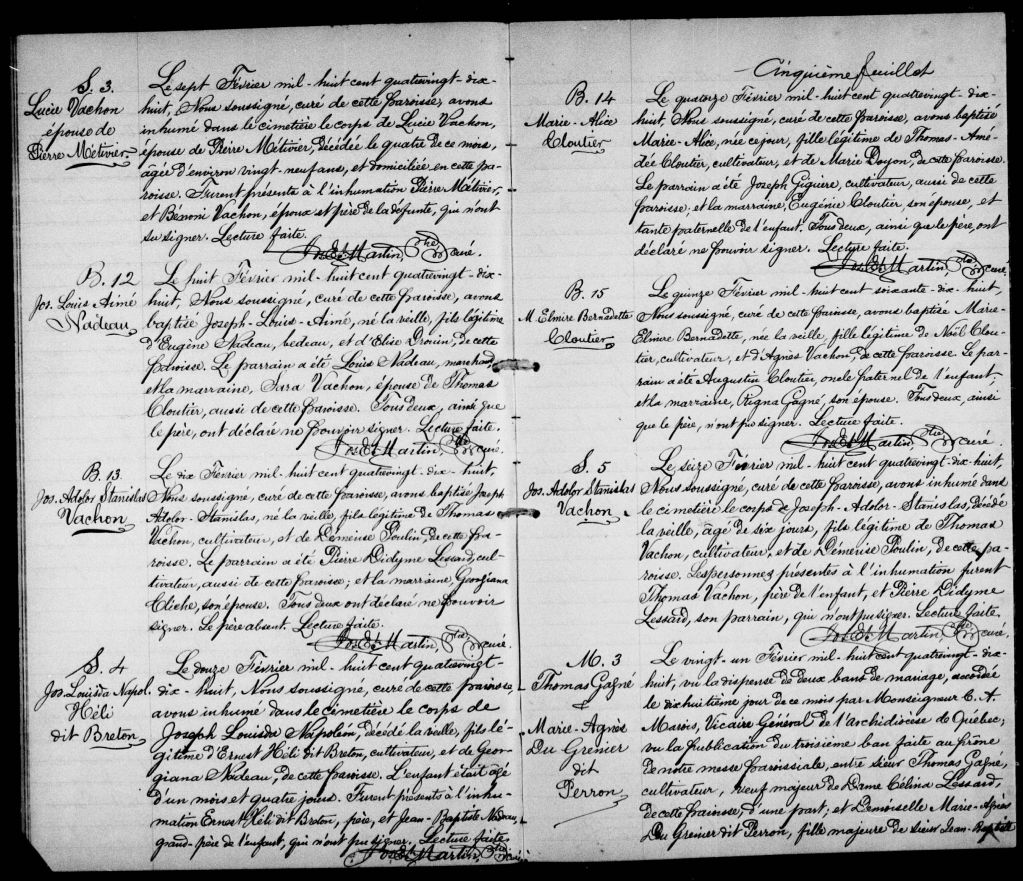 S. 3.
Lucie Vachon
épouse de
Pierre Métivier.
Le sept Février mil-huit cent quatrevingt-dix-
huit, Nous soussigné, curé de cette paroisse, avons
inhumé dans le cimetière le corps de Lucie Vachon,
épouse de Pierre Métivier, décédée le quatre de ce mois,
agée d'environ vingt-neuf ans, et domiciliée en cette pa-
roisse. Furent présents à l'inhumation Pierre Métivier,
et Bénoni Vachon, époux et père de la défunte, qui n'ont
su signer. Lecture faite.
Jos. Et. Martin, Ptre curé.
B. 12
Jos. Louis Aimé
Nadeau
Le huit Février mil-huit cent quatrevingt-dix-
huit, Nous soussigné, curé de cette paroisse, avons
baptisé Joseph-Louis-Aimé, né la veille, fils légitime
d'Eugène Nadeau, bedeau, et d'Elise Drouin, de cette
paroisse. Le parrain a été Louis Nadeau, marchand,
et la marraine, Sara Vachon, épouse de Thomas
Cloutier, aussi de cette paroisse. Tous deux, ainsi que
le père, ont déclaré ne pouvoir signer. Lecture faite.
Jos. Et. Martin, Ptre curé.
B. 13
Jos. Adolor Stanislas
Vachon
Le dix Février mil-huit cent quatrevingt-dix-huit,
Nous soussigné, curé de cette paroisse, avons baptisé Joseph
Adolor-Stanislas, né la veille, fils légitime de Thomas
Vachon, cultivateur, et de Démerise Poulin, de cette pa-
roisse. Le parrain a été Pierre Didyme Lessard, cul-
tivateur, aussi de cette paroisse, et la marraine, Georgiana
Cliche, son épouse. Tous deux ont déclaré ne pouvoir
signer. Le père absent. Lecture faite.
Jos. Et. Martin, Ptre curé.
S. 4
Jos. Louisda Napol.
Héli
dit Breton
Le douze Février mil-huit cent quatrevingt-
dix-huit, Nous soussigné, curé de cette paroisse,
avons inhumé dans le cimetière le corps de
Joseph Louisda Napoléon, décédé la veille, fils lé-
gitime d'Ernest Héli dit Breton, cultivateur, et de Geor-
giana Nadeau, de cette paroisse. L'enfant était agé
d'un mois et quatre jours. Furent présents à l'inhu-
mation Ernest Héli dit Breton, père, et Jean-Baptiste Nadeau,
grand-père de l'enfant, qui n'ont pu signer. Lecture faite.
Jos. Et. Martin, Ptre curé
Cinquième feuillet
B. 14
Marie-Alice
Cloutier
Le quatorze Février mil-huit cent quatrevingt-dix-
huit, Nous soussigné, curé de cette paroisse, avons baptisé
Marie-Alice, née ce jour, fille légitime de Thomas-Amé-
dée Cloutier, cultivateur, et de Marie Doyon, de cette paroisse.
Le parrain a été Joseph Giguère, cultivateur, aussi de cette
paroisse, et la marraine, Eugénie Cloutier, son épouse, et
tante paternelle de l'enfant. Tous deux, ainsi que le père, ont
déclaré ne pouvoir signer. Lecture faite.
Jos. Et. Martin, Ptre curé.
B. 15
M. Elmire Bernadette
Cloutier
Le quinze Février mil-huit cent soixante-dix-huit,
Nous soussigné, curé de cette paroisse, avons baptisé Marie-
Elmire Bernadette, née la veille, fille légitime de Noël Clou-
tier, cultivateur, et d'Agnès Vachon, de cette paroisse. Le par-
rain a été Augustin Cloutier, oncle paternel de l'enfant,
et la marraine, Régna Gagné, son épouse. Tous deux, ainsi
que le père, n'ont pu signer. Lecture faite.
Jos. Et. Martin, Ptre curé.
S. 5
Jos. Adolor Stanislas
Vachon
Le seize Février mil-huit cent quatrevingt-dix-huit,
Nous soussigné, curé de cette paroisse, avons inhumé dans
le cimetière le corps de Joseph-Adolor-Stanislas, décédé
la veille, agé de six jours, fils légitime de Thomas
Vachon, cultivateur, et de Démerise Poulin, de cette pa-
roisse. Les personnes présentes à l'inhumation furent
Thomas Vachon, père de l'enfant, et Pierre Didyme
Lessard, son parrain, qui n'ont pu signer. Lecture faite.
Jos. Et. Martin, Ptre curé.
M. 3
Thomas Gagné
Marie-Agnès
Du Grenier
dit
Perron
Le vingt-un Février mil-huit cent quatrevingt-dix-
huit, vu la dispense de deux bans de mariage, accordée
le dixhuitième jour de ce mois par Monseigneur C. A.
Marois, Vicaire Général de l'archidiocèse de Québec;
vu la publication du troisième ban faite au prône
de notre messe paroissiale, entre sieur Thomas Gagné,
cultivateur, veuf majeur de Dame Célina Lessard,
de cette paroisse, d'une part; et Demoiselle Marie-Agnès
Du Grenier dit Perron, fille majeure de sieur Jean-Baptiste